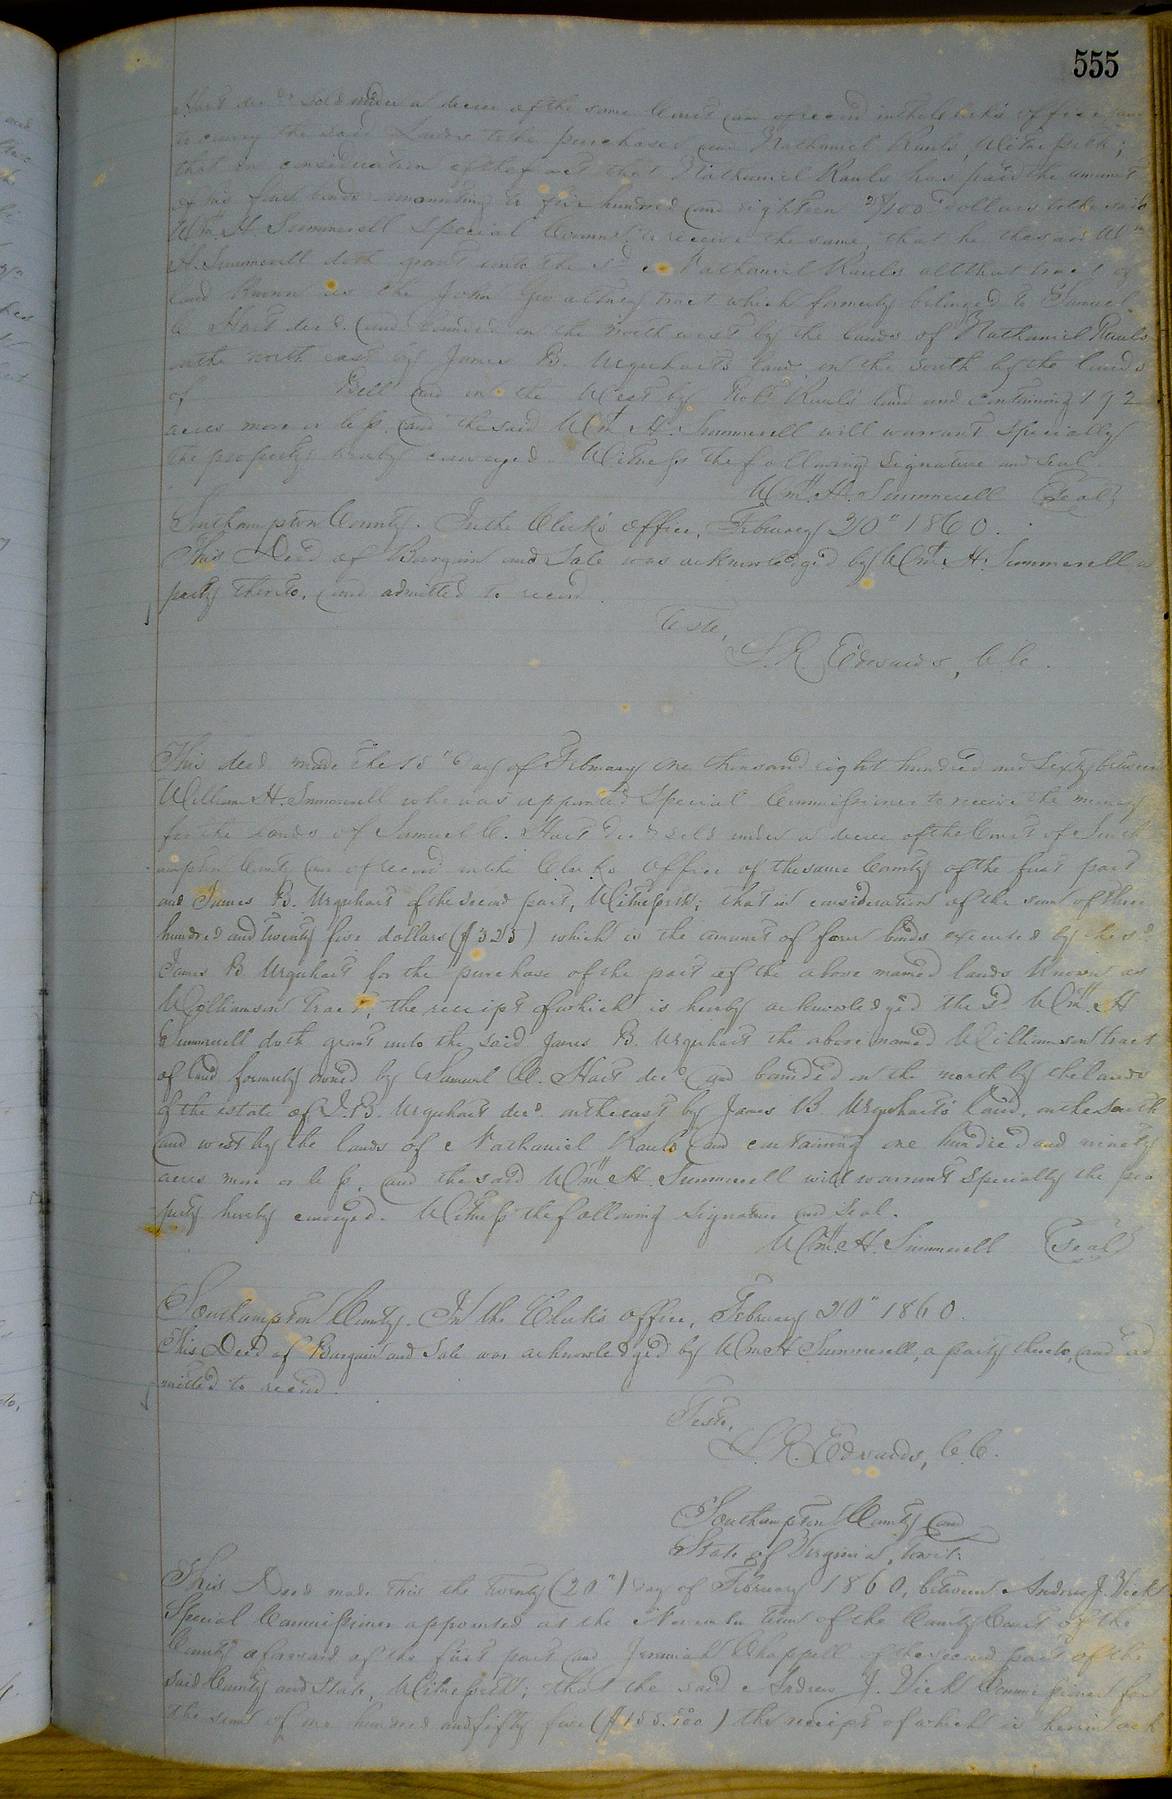 555
Hart dec'd sold under a decree of the same Court and of record in the Clerk's office and
to convey the said Lands to the purchaser and Nathaniel Rauls, Witnesseth;
that in consideration of the fact that Nathaniel Rauls has paid the amount
of his four bonds amounting to five hundred and eighteen /100 dollars to the said
Wm. H. Summerell Special Commr. to receive the same, that he the said Wm
H. Summerell doth grant unto the sd Nathaniel Rauls all that tract of
land known as the John Gwaltney tract which formerly belonged to Samuel
C. Hart decd. and bounded on the north west by the lands of Nathaniel Rauls
on the north east by James B. Urquhart's land on the south by the lands
of Bell and on the West by Robt Rauls' land and containing 192
acres more or less, and the said Wm H. Summerell will warrant Specially
the property hereby conveyed. Witness the following Signature and seal.
Wm. H. Summerell (Seal)
Southampton County. In the Clerk's office, February 20" 1860.
This Deed of Bargain and Sale was acknowledged by Wm. H. Summerell a
party thereto, and admitted to record.
Teste,
L. R. Edwards, C.C.
This deed made the 18" day of February one thousand eight hundred and Sixty between
William H. Summerell who was appointed Special Commissioner to receive the money
for the lands of Samuel C. Hart decd sold under a decree of the Court of South
ampton County and of record in the Clerks Office of the same County of the first part
and James B. Urquhart of the second part, Witnesseth; that in consideration of the sum of three
hundred and twenty five dollars ($325) which is the amount of four bonds executed by the sd
James B Urquhart for the purchase of the part of the above named lands known as
Williamson Tract, the receipt of which is hereby acknowledged the sd Wm. H
Summerell doth grant unto the said James B. Urquhart the above named Williamson tract
of land formerly owned by Samuel C. Hart decd and bounded on the north by the lands
of the estate of J. B. Urquhart decd. on the east by James B Urquhart's land, on the South
and west by the lands of Nathaniel Rauls and containing one hundred and ninety
acres more or less, and the said Wm H. Summerell will warrant Specially the pro
perty hereby conveyed. Witness the following Signature and Seal.
Wm. H. Summerell (Seal)
Southampton County. In the Clerk's office, February 20" 1860.
This Deed of Bargain and Sale was acknowledged by Wm H Summerell, a party thereto, and ad
mitted to record.
Teste,
L. R. Edwards, C.C.
Southampton County and
State of Virginia, towit:
This Deed made this the twenty (20") day of February 1860, between Andrew J. Vick
Special Commissioner appointed at the November term of the County Court of the
County aforesaid of the first part and Jeremiah Chappell of the second part of the
said County and State, Witnesseth; that the said Andrew J. Vick Commissioner for
the sum of one hundred and fifty five ($155.00) the receipt of which is herein ack